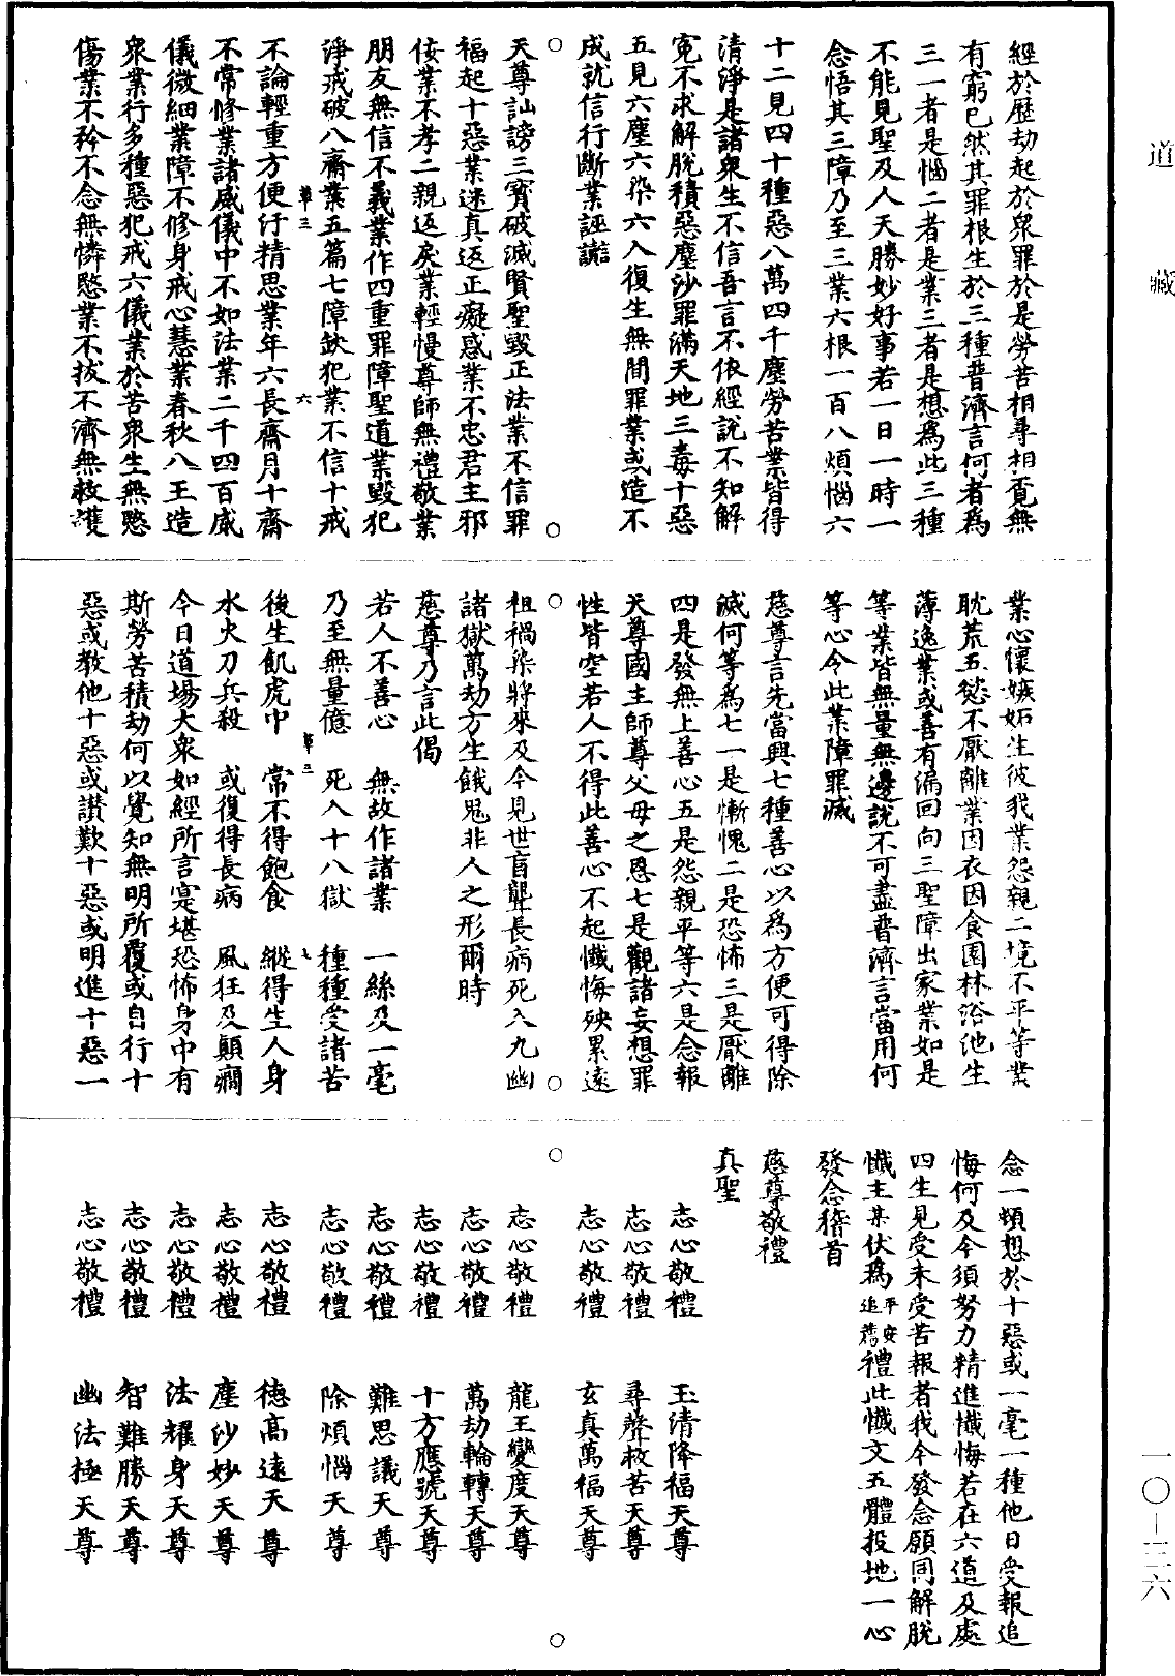 道藏
經於歷劫起於衆罪於是勞苦相尋相覓無
有窮已然其罪根生於三種普濟言何者爲
三一者是惱二者是業三者是想爲此三種
不能見聖及人天勝妙好事若一日一時一
念悟其三障乃至三業六根一百八煩惱六
十二見四十種惡八萬四千塵勞苦業皆得
清淨是諸衆生不信吾言不依經說不知解
寃不求解脫積惡塵沙罪滿天地三毒十惡
五見六塵六染六入復生無間罪業或造不
成就信行斷業誣謠
天尊訕謗三寳破滅賢聖毀正法業不信罪
福起十惡業迷真返正癡惑業不忠君主邪
佞業不孝二親返戾業輕慢尊師無禮敬業
朋友無信不義業作四重罪障聖道業毀犯
淨戒破八齋業五篇七障缺犯業不信十戒
草三 六
不論輕重方便汙精思業年六長齋月十齋
不常修業諸威儀中不如法業二千四百威
儀微細業障不修身戒心慧業春秋八王造
衆業行多種惡犯戒六儀業於苦衆生無慜
傷業不矜不念無憐慜業不拔不濟無救護
業心懷嫉妬生彼我業怨親二境不平等業
耽荒五慾不厭離業因衣因食園林浴池生
薄逸業或善有漏回向三聖障出家業如是
等業皆無量無邊說不可盡普濟言當用何
等心令此業障罪滅
慈尊言先當興七種善心以爲方便可得除
滅何等爲七一是慚愧二是恐怖三是厭離
四是發無上善心五是怨親平等六是念報
天尊國主師尊父母之恩七是觀諸妄想罪
性皆空若人不得此善心不起懺悔殃累遠
祖禍染將來及今見世盲聾長病死入九幽
諸獄萬劫方生餓鬼非人之形爾時
慈尊乃言此偈
若人不善心 無故作諸業 一絲及一毫
乃至無量億 死入十八獄 種種受諸苦
草三 七
後生飢虎中 常不得飽食 縱得生人身
水火刀兵殺 或復得長病 風狂及顛癇
今日道場大衆如經所言寔堪恐怖身中有
斯勞苦積劫何以覺知無明所覆或自行十
惡或教他十惡或讃歎十惡或明進十惡一
念一頃想於十惡或一毫一種他日受報追
悔何及今須努力精進懺悔若在六道及處
四生見受未受苦報者我今發念願同解脫
懺主某伏爲平安追薦禮此懺文五體投地一心
發念稽首
慈尊敬禮
真聖
志心敬禮 玉清降福天尊
志心敬禮 尋聲救苦天尊
志心敬禮 玄真萬福天尊
志心敬禮 龍王變度天尊
志心敬禮 萬劫輪轉天尊
志心敬禮 十方應號天尊
志心敬禮 難思議天尊
志心敬禮 除煩惱天尊
志心敬禮 德高遠天尊
志心敬禮 塵沙妙天尊
志心敬禮 法耀身天尊
志心敬禮 智難勝天尊
志心敬禮 幽法極天尊
一〇—三六